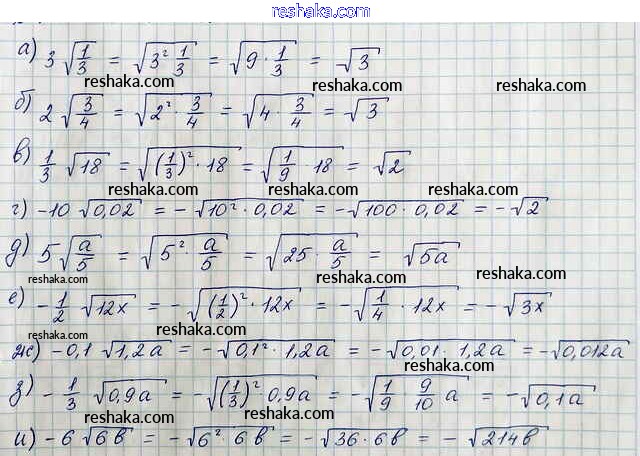 reshaka.com
а) 3 √(1/3) = √(3² 1/3) = √(9 · 1/3) = √3
reshaka.com reshaka.com
б) 2 √(3/4) = √(2² · 3/4) = √(4 · 3/4) = √3
reshaka.com
в) 1/3 √18 = √((1/3)² · 18) = √(1/9 · 18) = √2
reshaka.com reshaka.com
г) -10 √0,02 = -√(10² · 0,02) = -√(100 · 0,02) = -√2
д) 5 √(a/5) = √(5² · a/5) = √(25 · a/5) = √5a
reshaka.com reshaka.com
е) -1/2 √12x = -√((1/2)² · 12x) = -√(1/4 · 12x) = -√3x
reshaka.com reshaka.com
ж) -0,1 √1,2a = -√(0,1² · 1,2a) = -√(0,01 · 1,2a) = -√0,012a
з) -1/3 √0,9a = -√((1/3)² · 0,9a) = -√(1/9 9/10 a) = -√0,1a
reshaka.com reshaka.com
и) -6 √6b = -√(6² · 6b) = -√(36 · 6b) = -√214b
reshaka.com